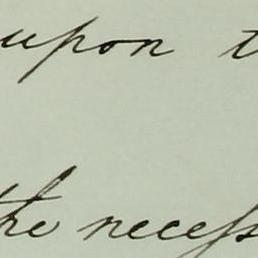 upon t
the necess